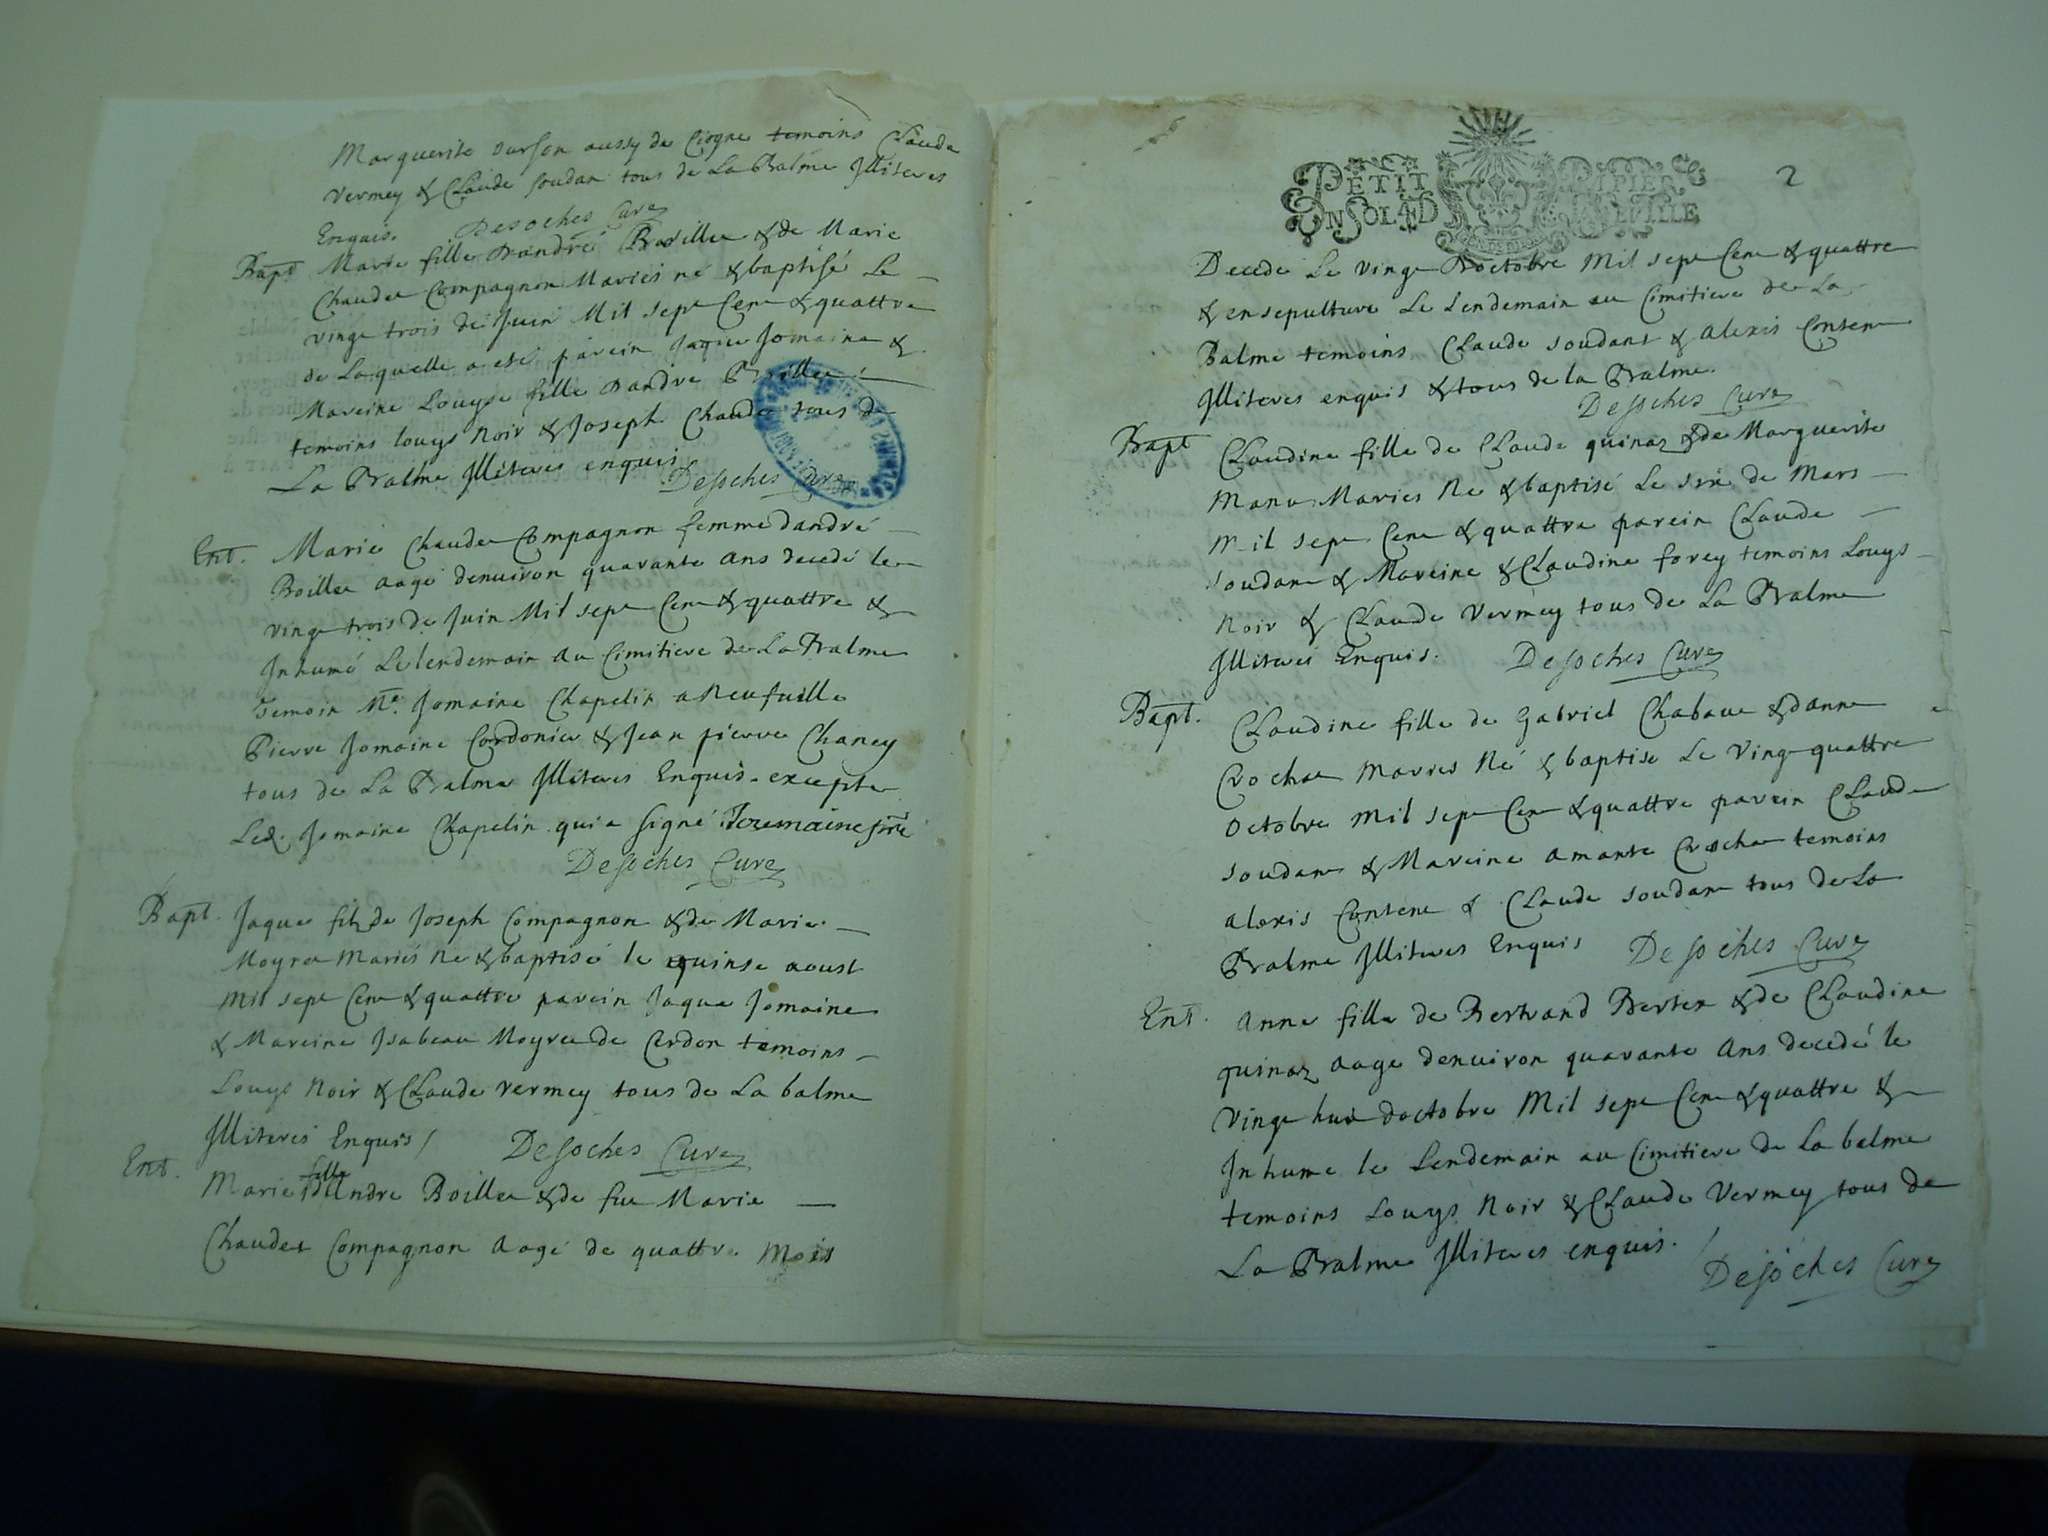 Marguerite surson aussy de Ciogne temoins Claude
Vermey & Claude soudan tous de La Balme Illiteres
Enquis. Desoches Curé
Bapt Marie fille Dandré Boillee & de Marie
Chaudet Compagnon Mariés né & baptisé Le
vingt trois de Juin Mil sept Cent & quattre
de Laquelle a esté parein Jaque Jomaine &
Mareine Louyse fille Dandre Boillee
temoins louys Noir & Joseph Chaudet tous de
La Balme Illiteres enquis
Desoches Curé
Ent. Marie Chaudet Compagnon femme dandré
Boillee aagé denuiron quarante ans decedé le
vingt trois de Juin Mil sept Cent & quattre &
Inhumé Le lendemain au Cimitiere de La Balme
Temoin Mre. Jomaine Chapelin a Neufuille
Pierre Jomaine Cordonier & Jean pierre Chaney
tous de La Balme Illiteres Enquis excepte
Led. Jomaine Chapelin qui a signé Jouemaine ptre
Desoches Curé
Bapt. Jaque fils de Joseph Compagnon & de Marie
Moyret Mariés Né & baptisé le quinse aoust
Mil sept Cent & quattre parein Jaque Jomaine
& Mareine Isabeau Moyret de Cerdon temoins
Louys Noir & Claude vermey tous de La balme
Illiteres Enquis / Desoches Curé
Ent. Marie fille Dandre Boillee & de fue Marie
Chaudet Compagnon Aagé de quattre Mois
PETIT PAPIER
UN SOL 2
Decedé Le vingt Doctobre Mil sept Cent & quattre
& ensepulture Le Lendemain au Cimitiere de La
Balme temoins Claude soudant & Alexis Conten
Illiteres enquis & tous de la Balme.
Desoches Curé
Bapt Claudine fille de Claude quinaz & de Marguerite
Manu Maries Né & baptisé Le sixe de Mars
Mil sept Cent & quattre parein Claude
soudan & Mareine & Claudine forey temoins Louys
Noir & Claude Vermey tous de La Balme
Illiteres Enquis. Desoches Curé
Bapt. Claudine fille de Gabriel Chabaue & danne
Crochat Maries Né & baptise Le Vingt quattre
Octobre Mil sept Cent & quattre parein Claude
soudan & Mareine Amante Crochat temoins
Alexis Conten & Claude soudan tous de La
Balme Illiteres Enquis Desoches Curé
Ent. Anne fille de Bertrand Berter & de Claudine
quinaz aage denuiron quarante Ans decedé le
Vingt huit doctobre Mil sept Cent & quattre &
Inhume le Lendemain au Cimitiere de La balme
temoins Louys Noir & Claude Vermey tous de
La Balme Illiteres enquis.
Desoches Curé